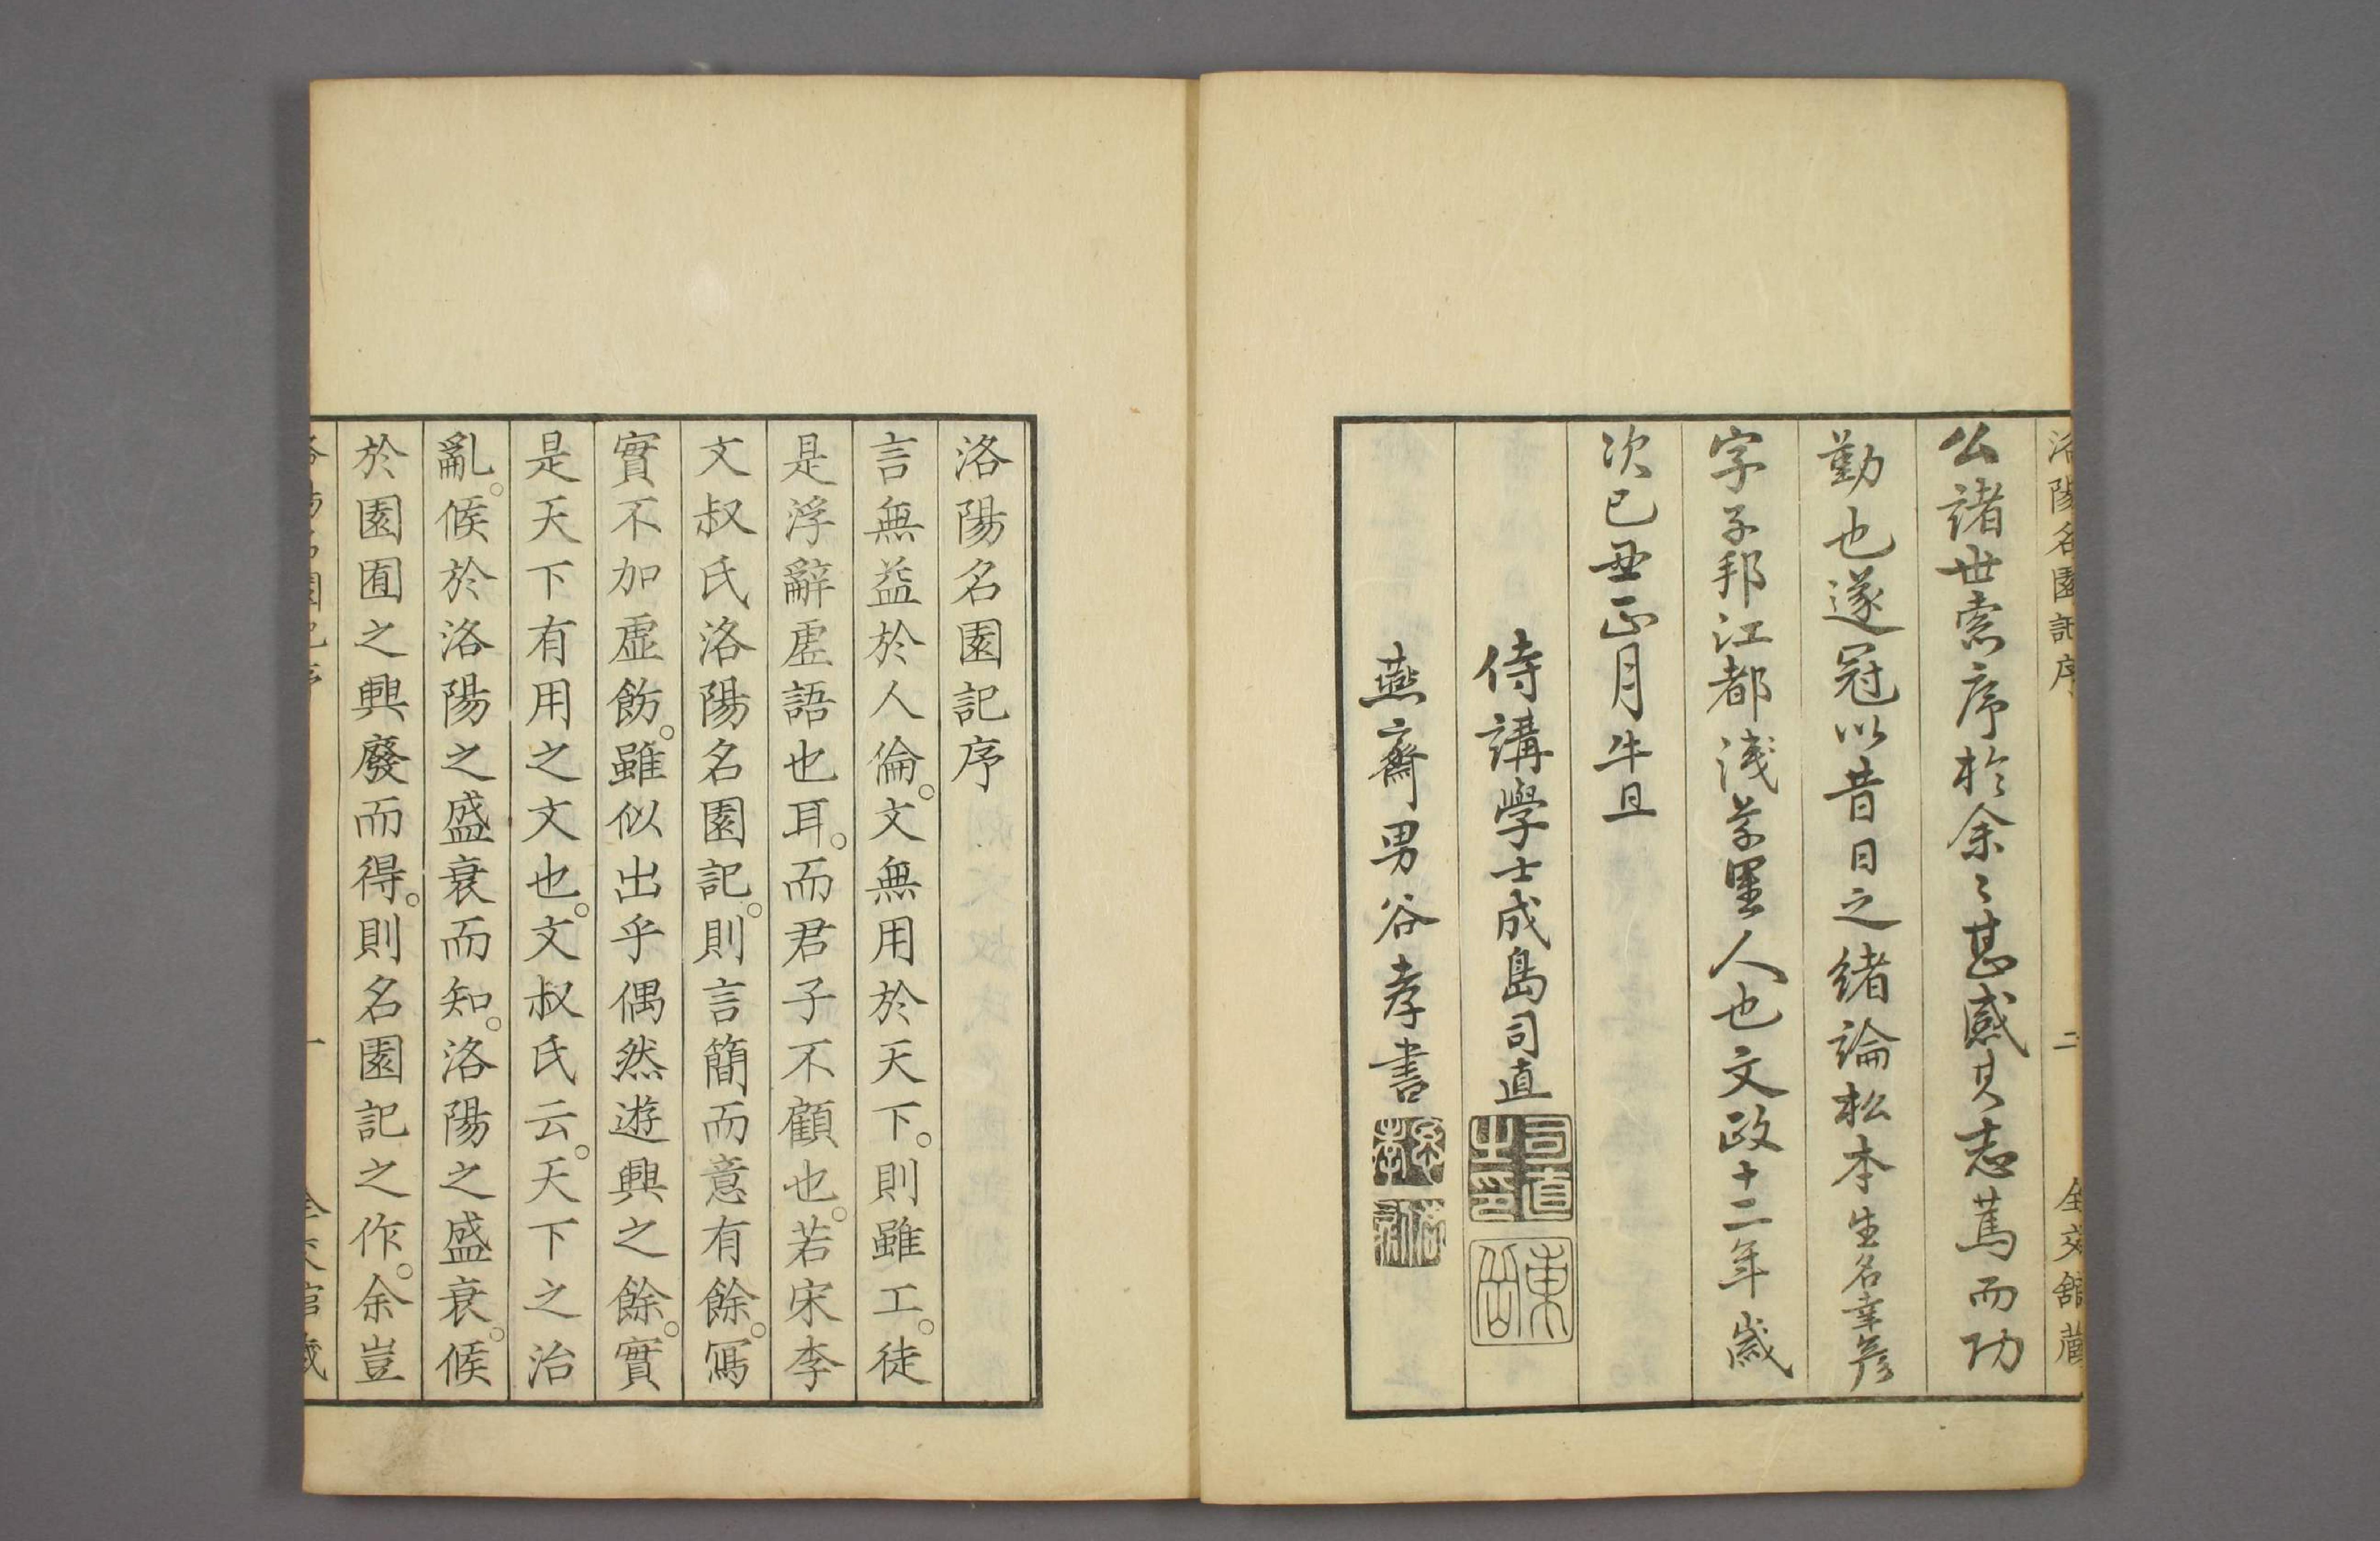 洛陽名園記序
二
全交館藏
公諸世索序於余〻甚感其志篤而功
勤也遂冠以昔日之緒論松本生名幸彦
字子邦江都淺草里人也文政十二年歲
次己丑正月牛旦
侍講學士成島司直
司直之印
東岳
燕齋男谷孝書
洛陽名園記序
言無益於人倫。文無用於天下。則雖工。徒
是浮辭虛語也耳。而君子不顧也。若宋李
文叔氏洛陽名園記。則言簡而意有餘。寫
實不加虛飭。雖似出乎偶然遊興之餘。實
是天下有用之文也。文叔氏云。天下之治
亂。候於洛陽之盛衰而知。洛陽之盛衰。候
於園囿之興廢而得。則名園記之作。余豈